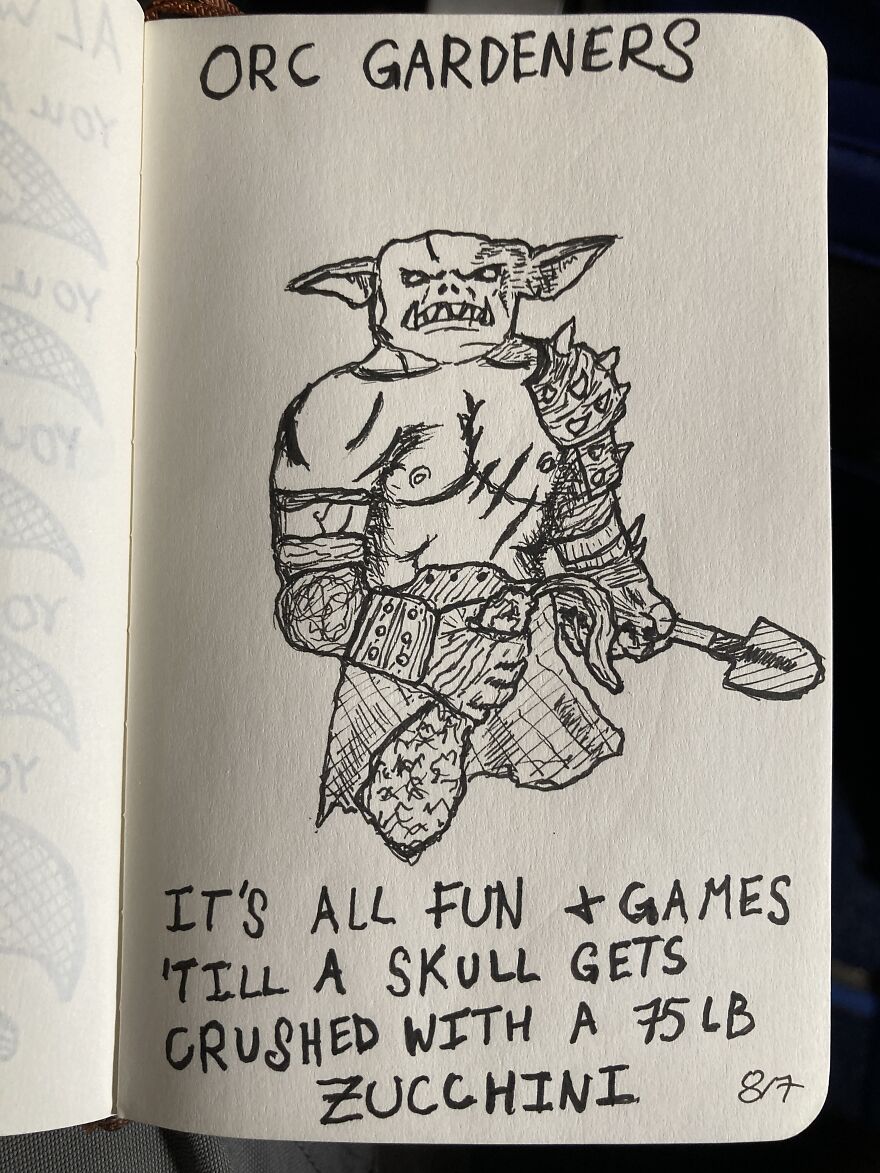 ORC GARDENERS
IT'S ALL FUN + GAMES
'TILL A SKULL GETS
CRUSHED WITH A 75 LB
ZUCCHINI
8/7